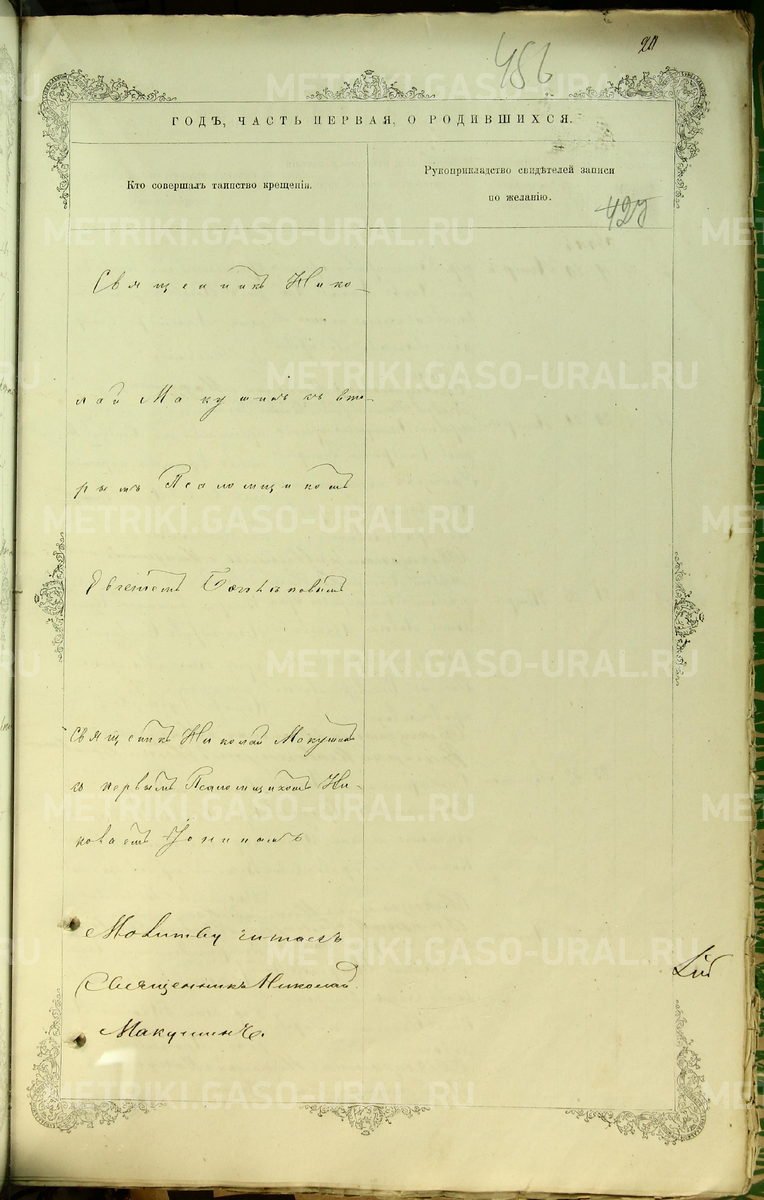 456
ГОДЪ, ЧАСТЬ ПЕРВАЯ, О РОДИВШИХСЯ.
Кто совершалъ таинство крещенія.
Рукоприкладство свидѣтелей записи
по желанію.
Священникъ Нико-
лай Макушинъ съ вто-
рымъ Псаломщикомъ
Евгеніемъ
Священникъ Николай Макушинъ
съ первымъ Псаломщикомъ Ни-
колаемъ
Молитву читалъ
Священникъ Николай
Макушинъ.
METRIKI.GASO-URAL.RU